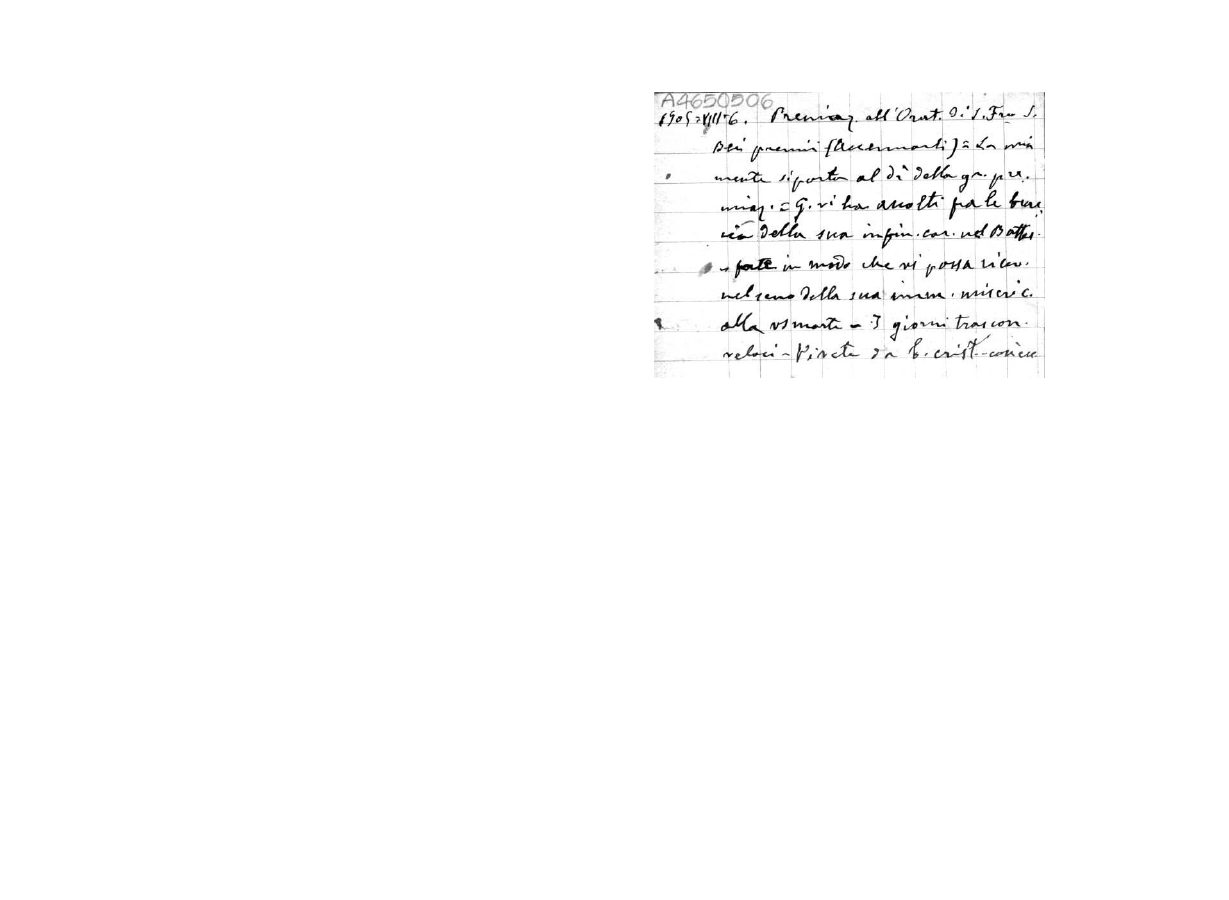 A4650506
1905-VIII-6. Premiaz. all'Orat. di S. Frco S.
Bei premii (Accennarli) = La mia
mente si porta al dì della gr. pre.
miaz. = G. vi ha accolti fra le brac
cia della sua infin. car. nel Battes.
= fate in modo che vi possa ricev.
nel seno della sua imm. miseric.
alla vs morte = I giorni trascon.
veloci = Vivete da b. crist.